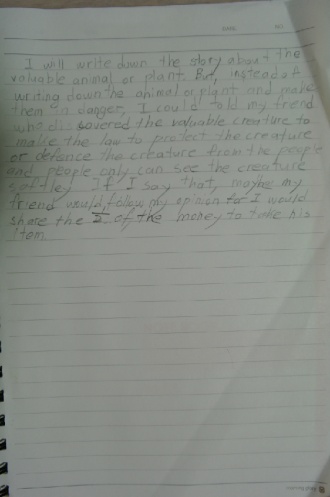 DATE NO.
I will write down the story about the
valuable animal or plant. But, instead of
writing down the animal or plant and make
them in danger, I could told my friend
who discovered the valuable creature to
make the law to protect the creature
or defence the creature from the people
and people only can see the creature
softley. If I say that, maybe my
friend would, follow my opinion for I would
share the of the money to take his
item.